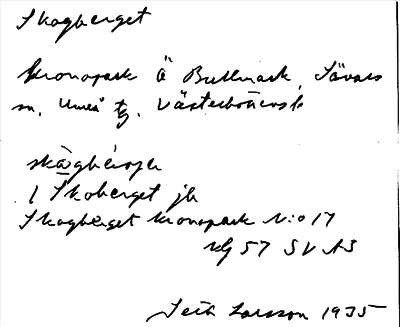 Skogberget
kronopark Ö Bullmark, Sävars
sn. Umeå tg. Västerbottens l.
skǡgbérɔjə
/ Skoberget jb
Skogberget kronopark N:o 17
Rg 57 SV AS
Seth Larsson 1935